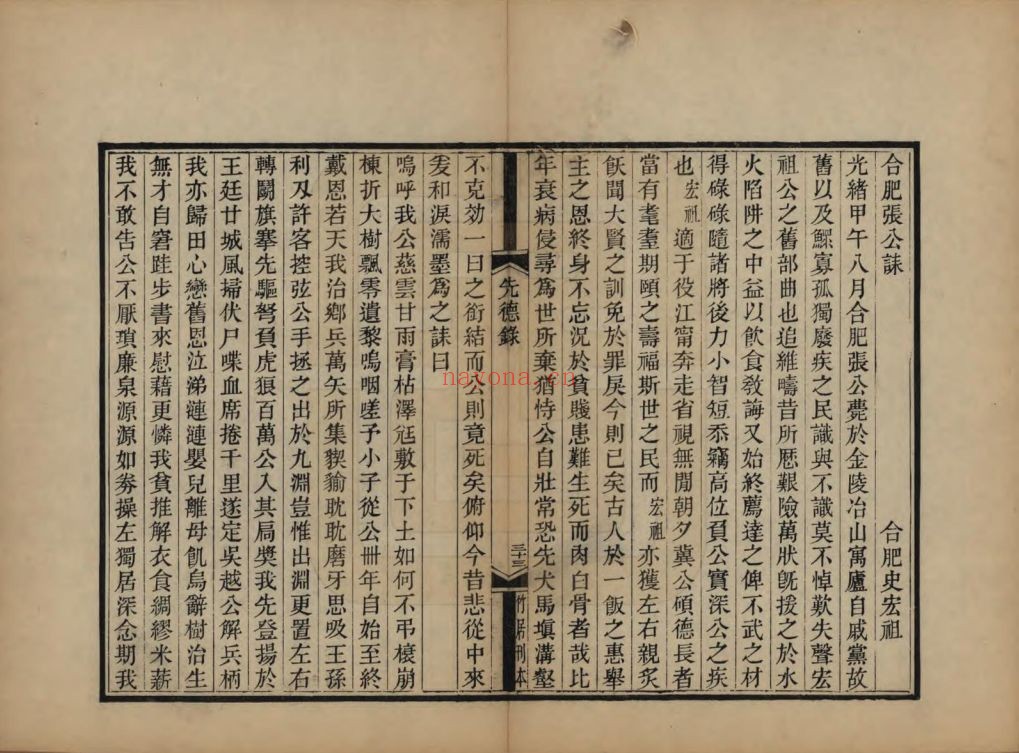 合肥張公誄
合肥史宏祖
光緒甲午八月合肥張公薨於金陵冶山寓廬自戚黨故
舊以及鰥寡孤獨廢疾之民識與不識莫不悼歎失聲宏
祖公之舊部曲也追維疇昔所歷艱險萬狀旣援之於水
火陷阱之中益以飮食敎誨又始終薦達之俾不武之材
得碌碌隨諸將後力小智短忝竊高位負公實深公之疾
也宏祖適于役江甯奔走省視無閒朝夕冀公碩德長者
當有耄耋期頤之壽福斯世之民而宏祖亦獲左右親炙
飫聞大賢之訓免於罪戾今則已矣古人於一飯之惠舉
主之恩終身不忘況於貧賤患難生死而肉白骨者哉比
年衰病侵尋爲世所棄猶恃公自壯常恐先犬馬塡溝壑
先德錄
三十三
竹居刊本
不克効一日之銜結而公則竟死矣俯仰今昔悲從中來
爰和淚濡墨爲之誄曰
嗚呼我公慈雲甘雨膏枯澤尩敷于下土如何不弔榱崩
棟折大樹飄零遺黎嗚咽嗟予小子從公卌年自始至終
戴恩若天我治鄕兵萬矢所集猰貐耽耽磨牙思吸王孫
利刄許客控弦公手拯之出於九淵豈惟出淵更置左右
轉鬭旗搴先驅弩負虎狼百萬公入其扃奬我先登揚於
王廷廿城風掃伏尸喋血席捲千里遂定吳越公解兵柄
我亦歸田心戀舊恩泣涕漣漣嬰兒離母飢烏辭樹治生
無才自窘跬步書來慰藉更憐我貧推解衣食綢繆米薪
我不敢告公不厭瑣廉泉源源如劵操左獨居深念期我
nayona.cn